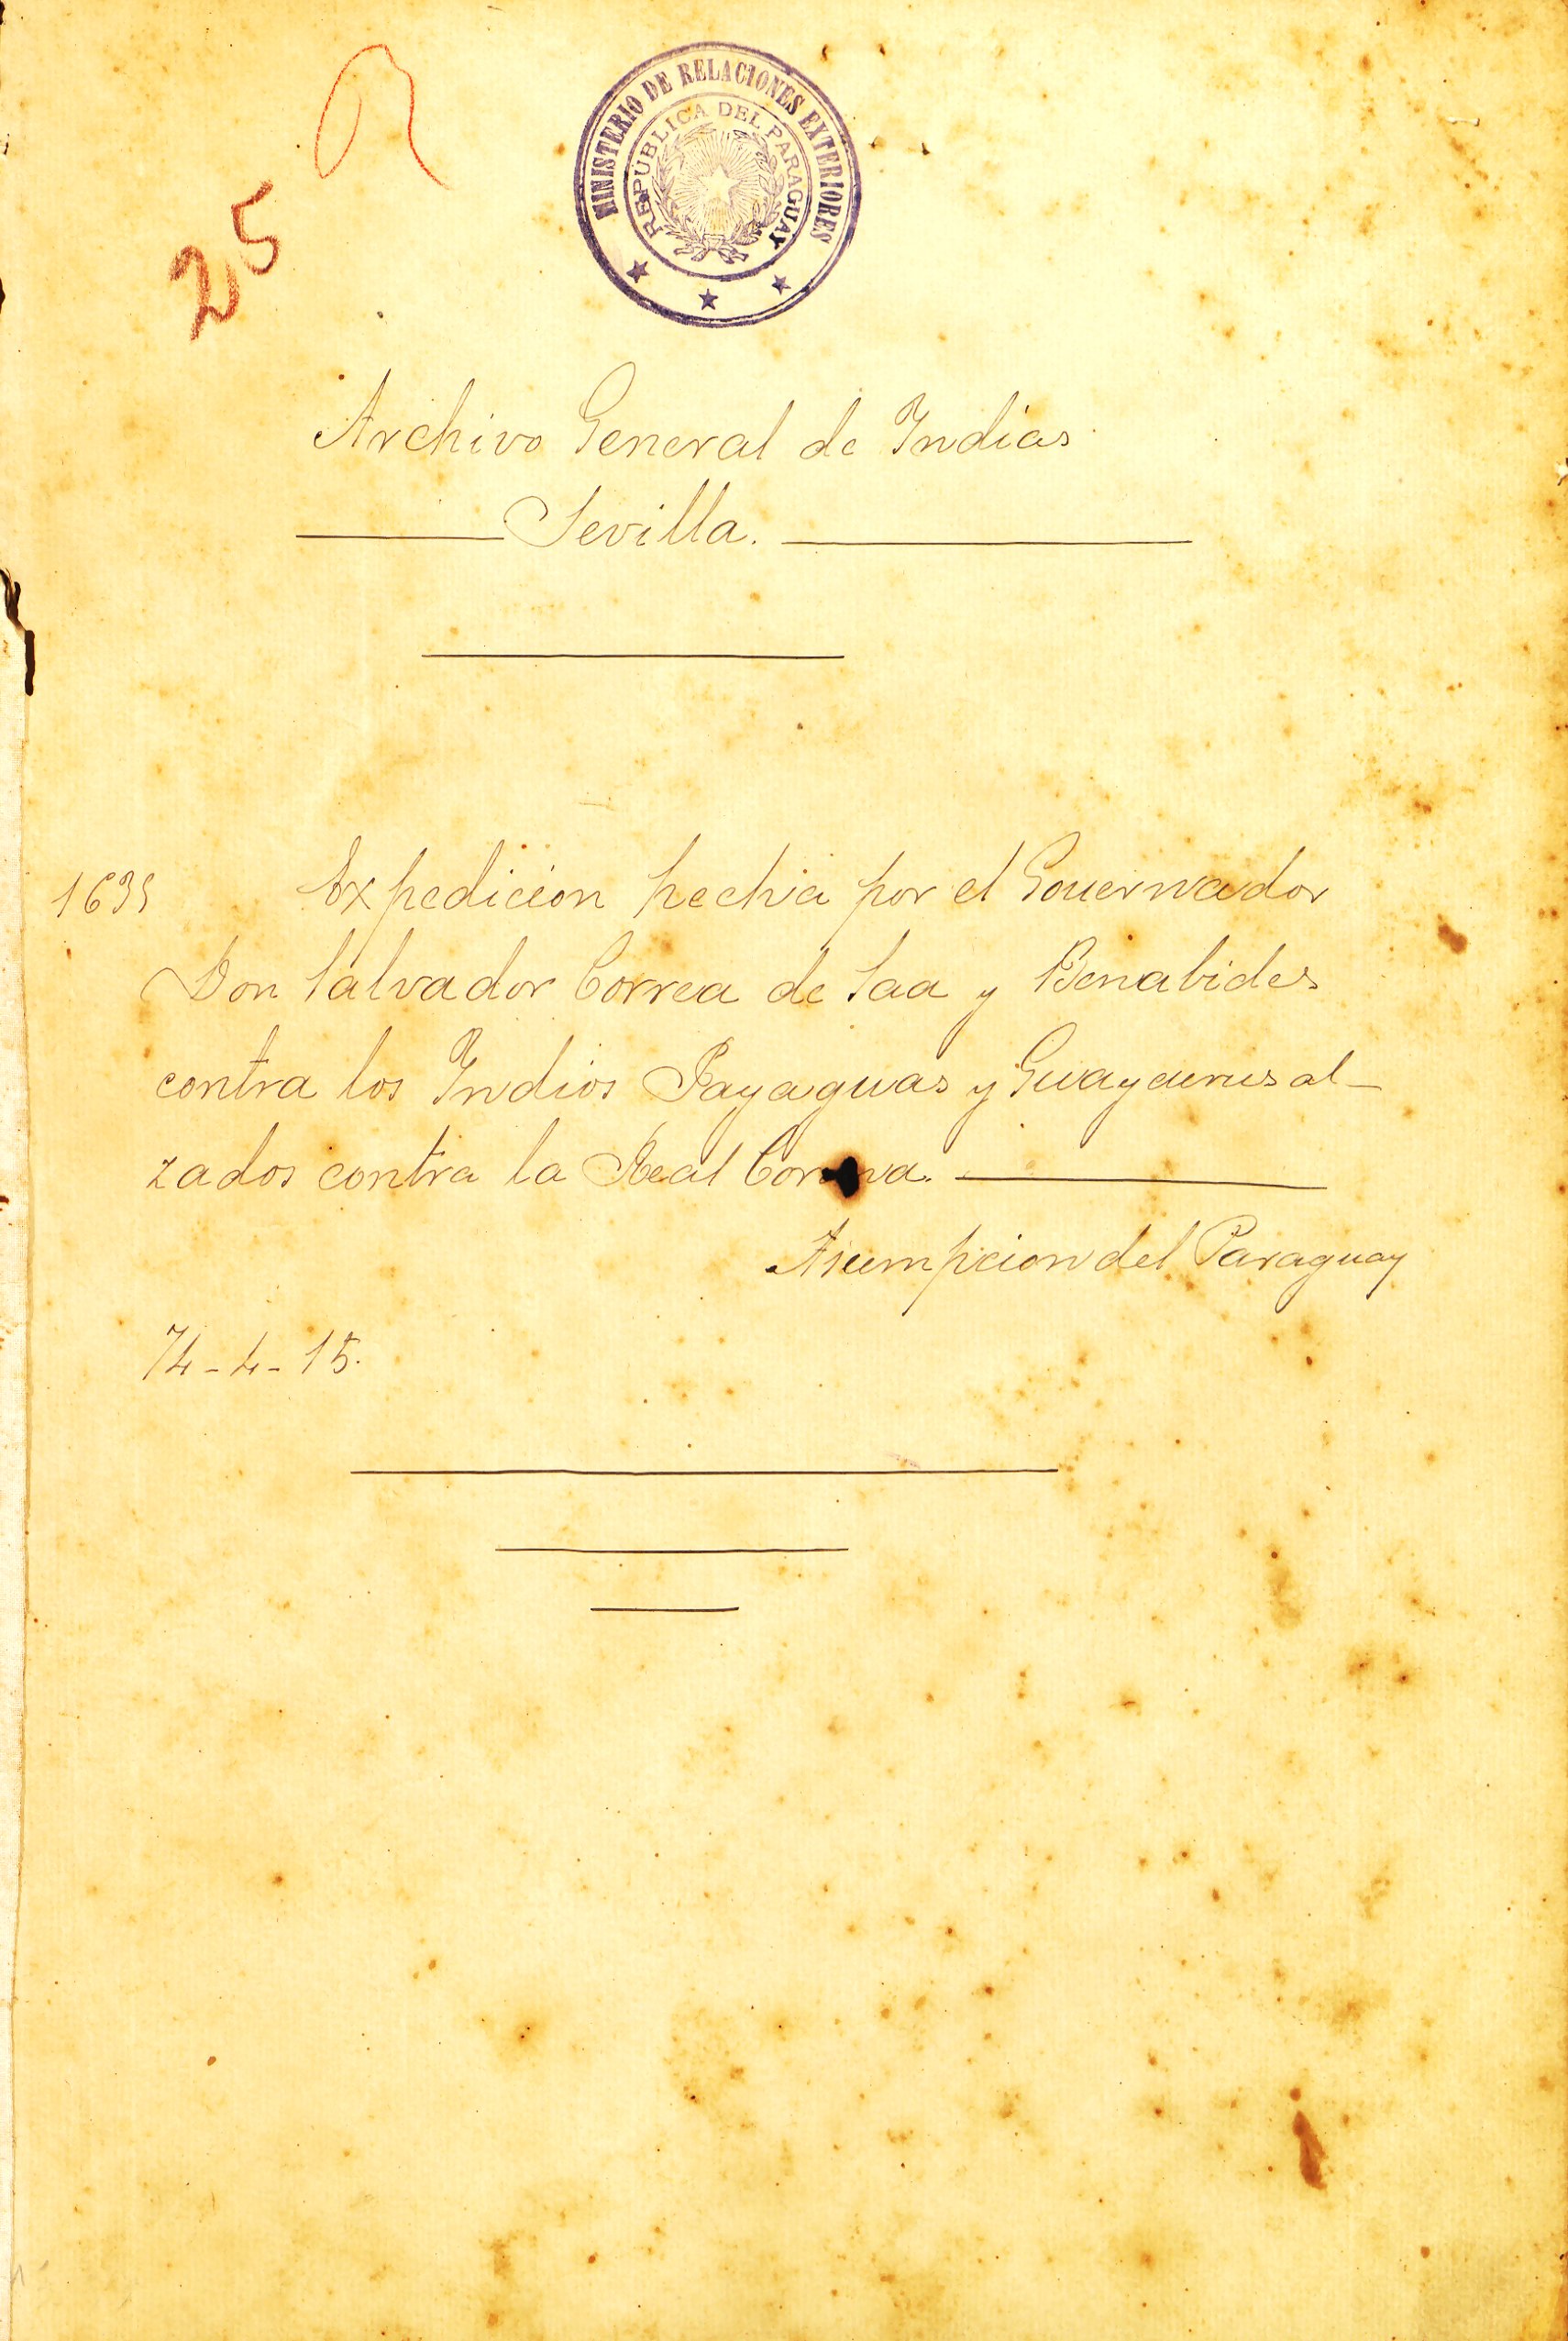 MINISTERIO DE RELACIONES EXTERIORES
REPÚBLICA DEL PARAGUAY
25
Archivo General de Indias
Sevilla.
1635 Expedicion hecha por el Gouernador
Don Salvador Correa de Saa y Benabides
contra los Indios Payaguas y Guaycurus al-
zados contra la Real Corona.
Asumpcion del Paraguay
74-4-15.